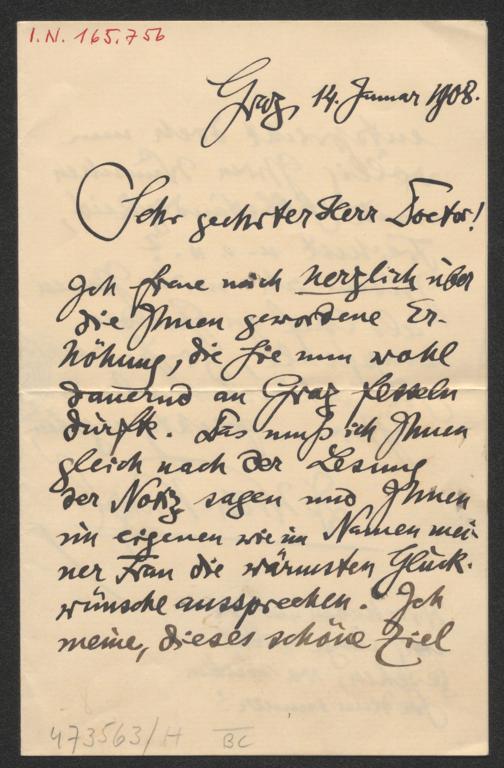 I.N. 165.756
Graz, 14. Januar 1908.
Sehr geehrter Herr Doctor!
Ich freue mich herzlich über
die Ihnen gewordene Er-
höhung, die Sie nun wohl
dauernd an Graz fesseln
dürfte. Das muß ich Ihnen
gleich nach der Lesung
der Notiz sagen und Ihnen
im eigenen wie im Namen mei-
ner Frau die wärmsten Glück-
wünsche aussprechen. Ich
meine, dieses schöne Ziel
473563/H BC